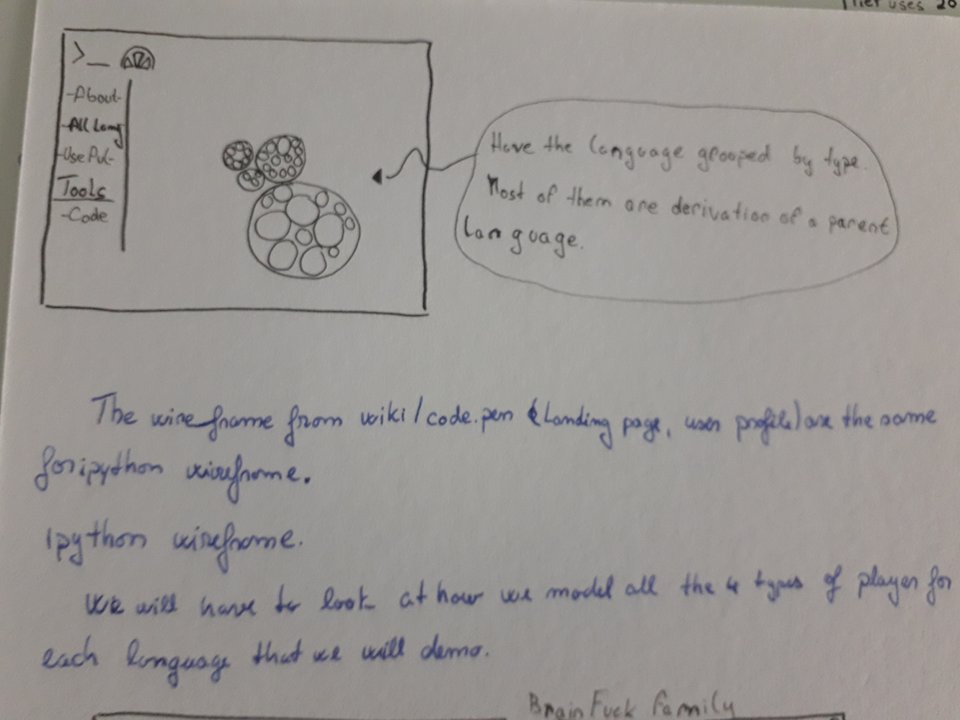 uses 20
>_
-About-
-All Lang
-Use Pol-
Tools
-Code
Have the language grooped by type.
Most of them are derivation of a parent
language.
The wireframe from wiki/code.pen (Landing page, user profile) are the same
for ipython wireframe.
ipython wireframe.
We will have to look at how we model all the 4 types of player for
each language that we will demo.
BrainFuck family